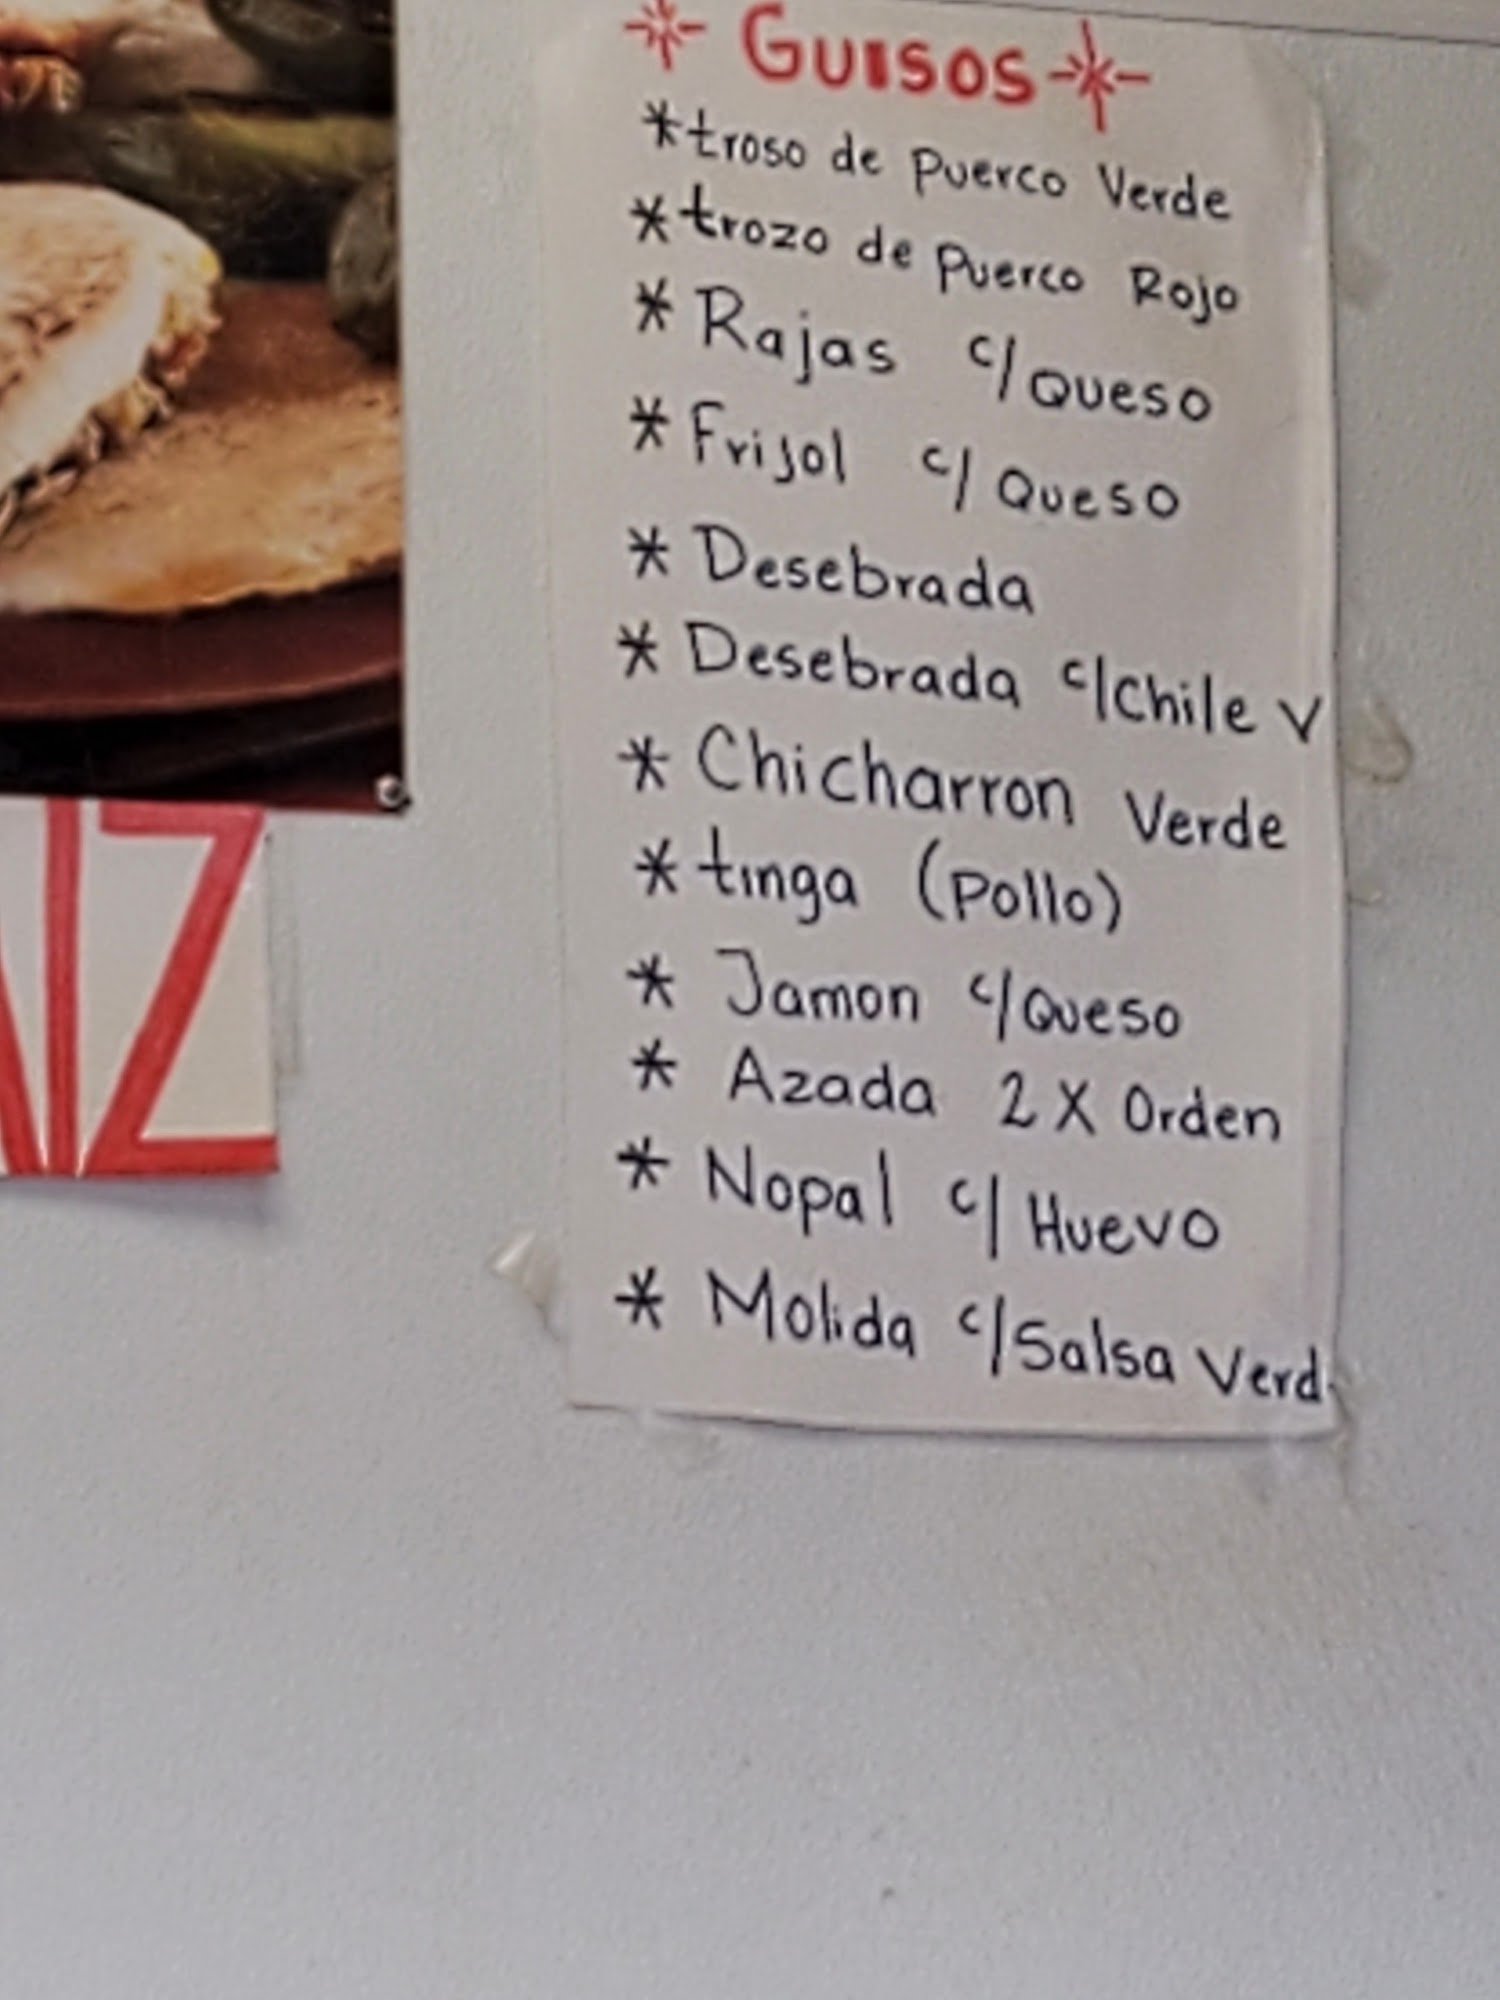 Guisos
*troso de Puerco Verde
*trozo de Puerco Rojo
*Rajas c/Queso
*Frijol c/Queso
*Desebrada
*Desebrada c/Chile V
*Chicharron Verde
*tinga (Pollo)
*Jamon c/Queso
*Azada 2 X Orden
*Nopal c/Huevo
*Molida c/Salsa Verd
IZ